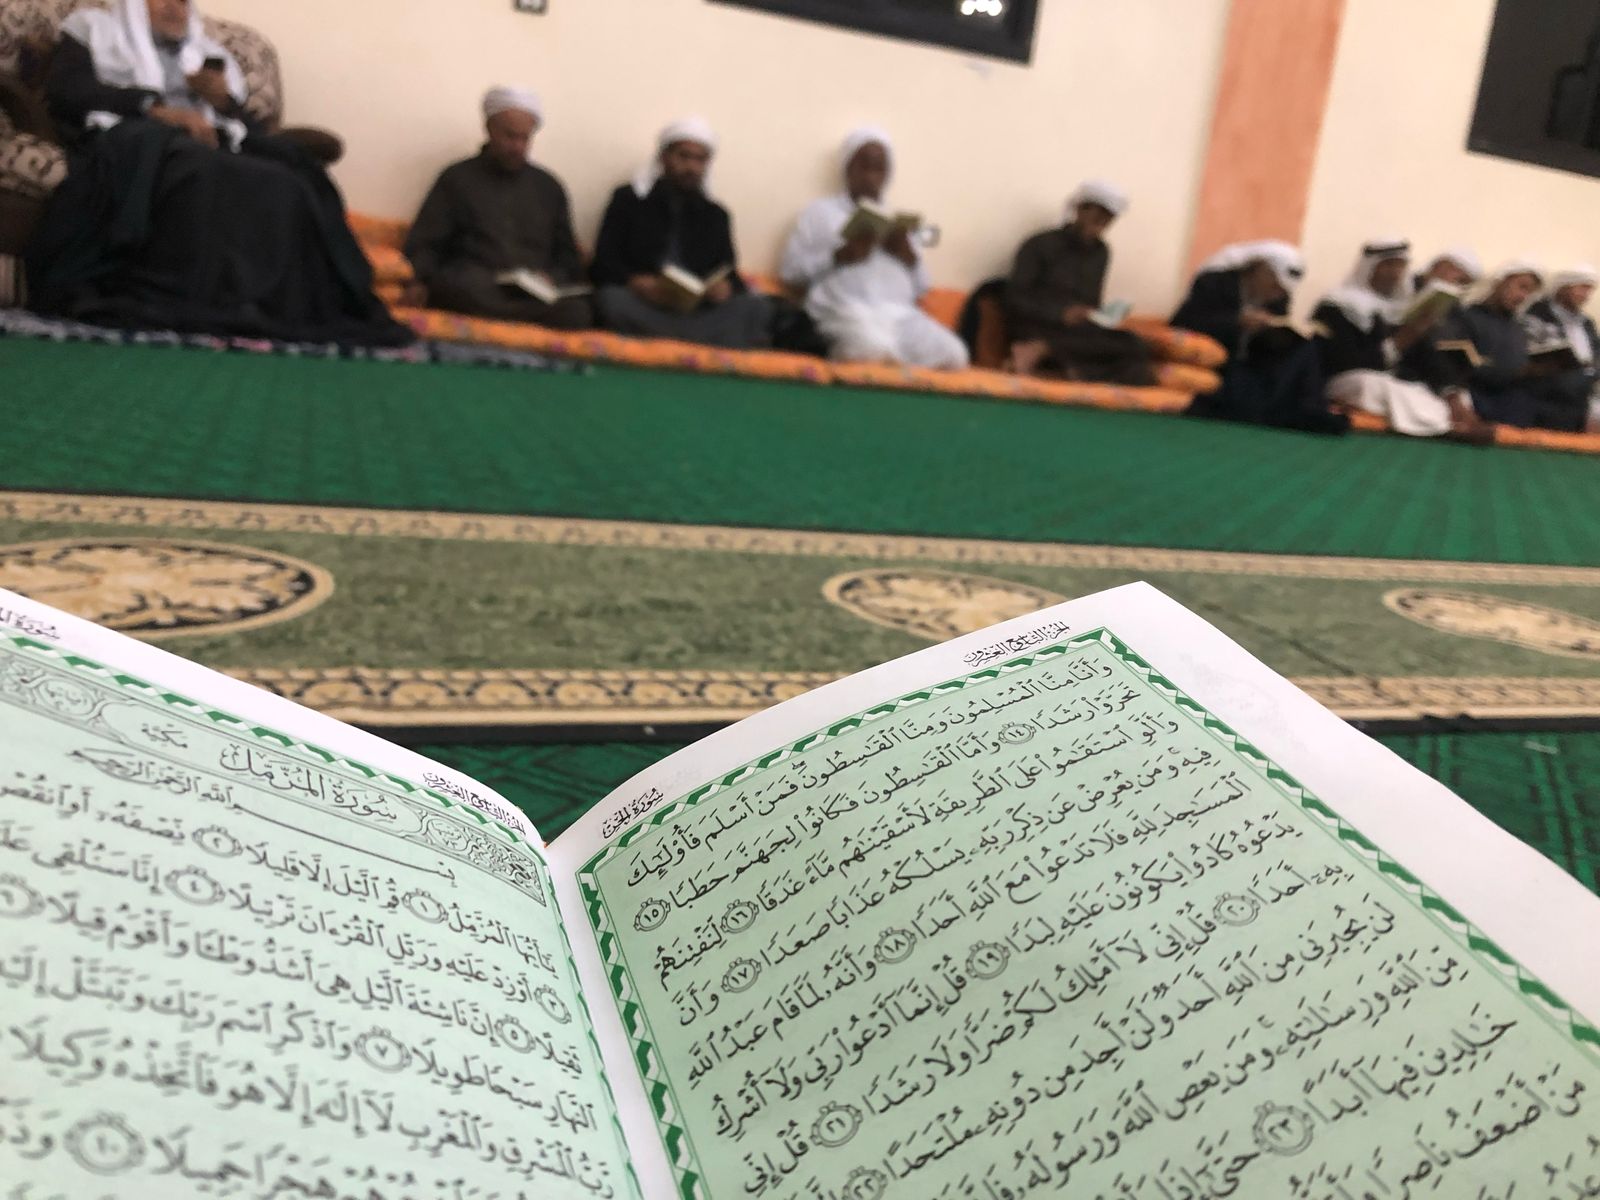 الجزء التاسع والعشرون
سورة الجن
وَأَنَّا مِنَّا ٱلْمُسْلِمُونَ وَمِنَّا ٱلْقَٰسِطُونَۖ فَمَنْ أَسْلَمَ فَأُو۟لَٰٓئِكَ
تَحَرَّوْا۟ رَشَدًا ١٤ وَأَمَّا ٱلْقَٰسِطُونَ فَكَانُوا۟ لِجَهَنَّمَ حَطَبًا ١٥
وَأَلَّوِ ٱسْتَقَٰمُوا۟ عَلَى ٱلطَّرِيقَةِ لَأَسْقَيْنَٰهُم مَّآءً غَدَقًا ١٦ لِّنَفْتِنَهُمْ
فِيهِۚ وَمَن يُعْرِضْ عَن ذِكْرِ رَبِّهِۦ يَسْلُكْهُ عَذَابًا صَعَدًا ١٧ وَأَنَّ
ٱلْمَسَٰجِدَ لِلَّهِ فَلَا تَدْعُوا۟ مَعَ ٱللَّهِ أَحَدًا ١٨ وَأَنَّهُۥ لَمَّا قَامَ عَبْدُ ٱللَّهِ
يَدْعُوهُ كَادُوا۟ يَكُونُونَ عَلَيْهِ لِبَدًا ١٩ قُلْ إِنَّمَآ أَدْعُوا۟ رَبِّى وَلَآ أُشْرِكُ
بِهِۦٓ أَحَدًا ٢٠ قُلْ إِنِّى لَآ أَمْلِكُ لَكُمْ ضَرًّا وَلَا رَشَدًا ٢١ قُلْ إِنِّى
لَن يُجِيرَنِى مِنَ ٱللَّهِ أَحَدٌ وَلَنْ أَجِدَ مِن دُونِهِۦ مُلْتَحَدًا ٢٢
مِّنَ ٱللَّهِ وَرِسَٰلَٰتِهِۦۚ وَمَن يَعْصِ ٱللَّهَ وَرَسُولَهُۥ فَإِنَّ
خَٰلِدِينَ فِيهَآ أَبَدًا ٢٣ حَتَّىٰٓ إِذَا
مَنْ أَضْعَفُ نَاصِرًا
الجزء التاسع والعشرون
سورة المزمل
مكية
بسم الله الرحمن الرحيم
يَٰٓأَيُّهَا ٱلْمُزَّمِّلُ ١ قُمِ ٱلَّيْلَ إِلَّا قَلِيلًا ٢ نِّصْفَهُۥٓ أَوِ ٱنقُصْ
٣ أَوْ زِدْ عَلَيْهِ وَرَتِّلِ ٱلْقُرْءَانَ تَرْتِيلًا ٤ إِنَّا سَنُلْقِى
ثَقِيلًا ٥ إِنَّ نَاشِئَةَ ٱلَّيْلِ هِىَ أَشَدُّ وَطْـًٔا وَأَقْوَمُ قِيلًا ٦
ٱلنَّهَارِ سَبْحًا طَوِيلًا ٧ وَٱذْكُرِ ٱسْمَ رَبِّكَ وَتَبَتَّلْ إِلَيْهِ
رَّبُّ ٱلْمَشْرِقِ وَٱلْمَغْرِبِ لَآ إِلَٰهَ إِلَّا هُوَ فَٱتَّخِذْهُ وَكِيلًا
هَجْرًا جَمِيلًا ١٠